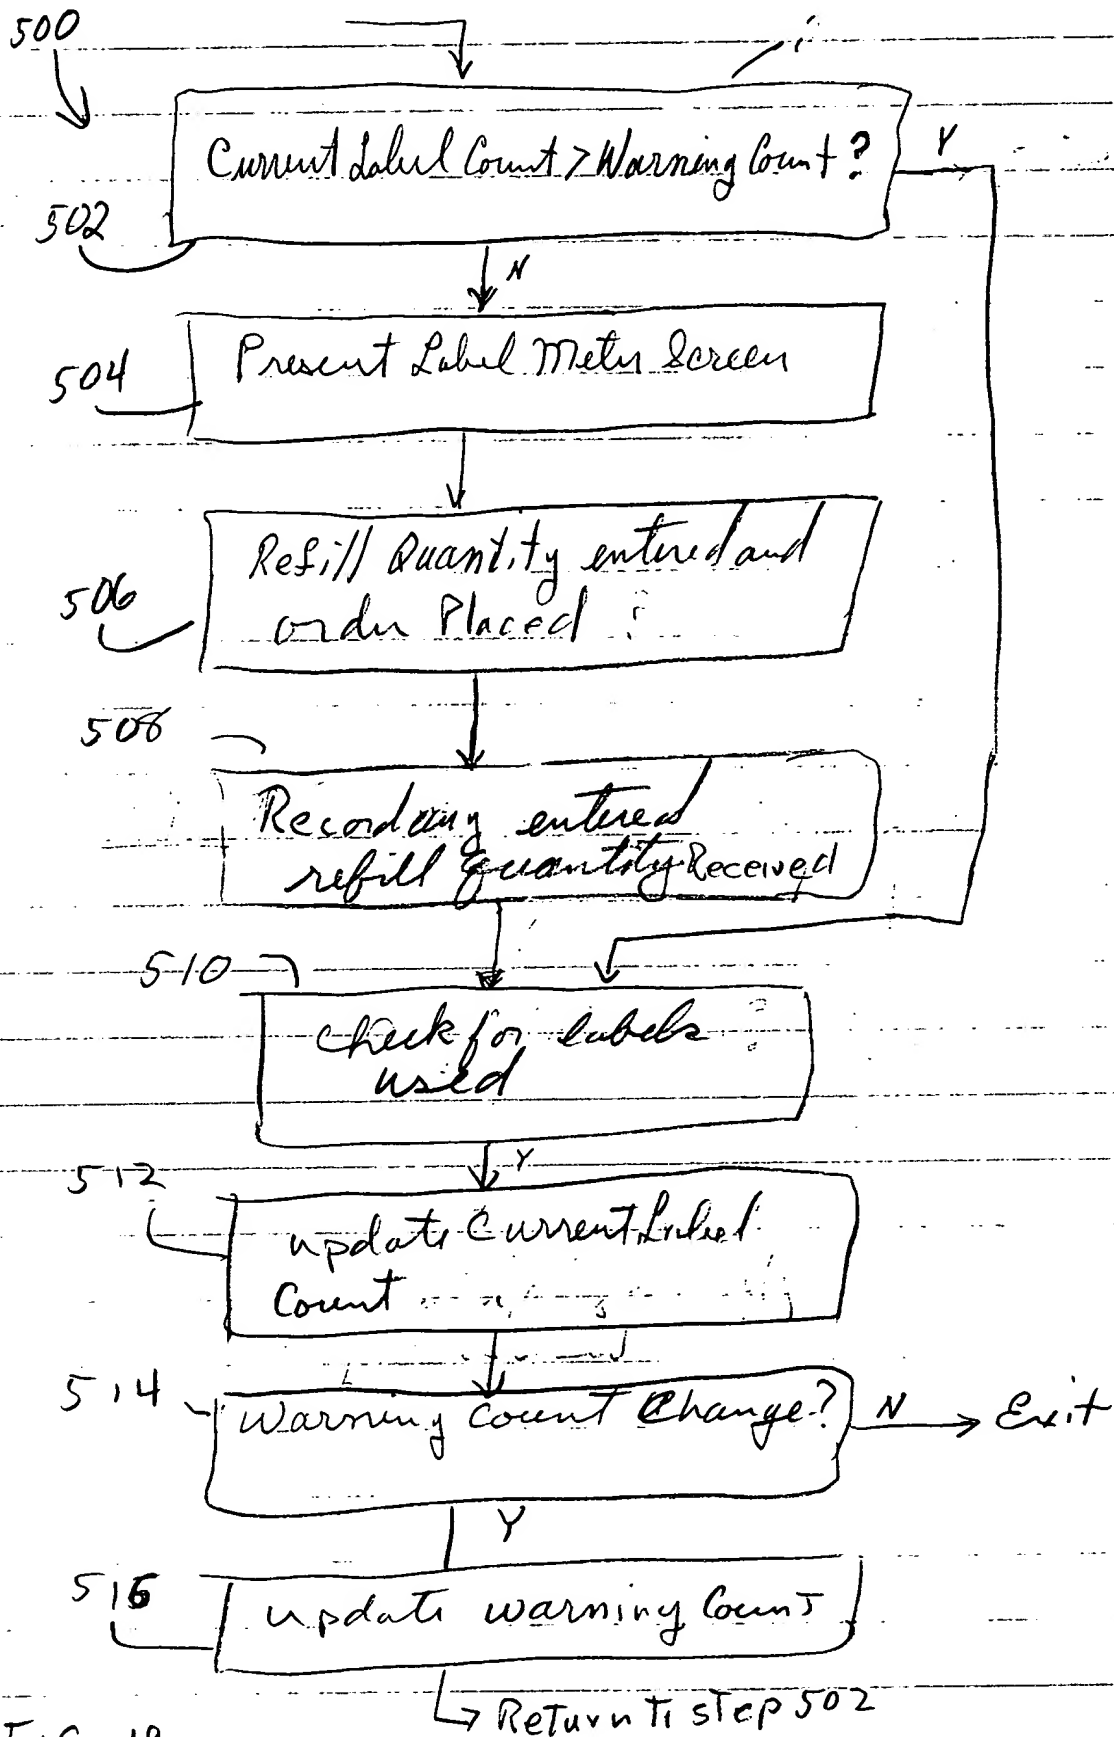 500
Current Label Count > Warning Count ?
Y
502
N
504
Present Label Meter Screen
506
Refill Quantity entered and
order Placed
508
Recording entered
refill quantity Received
510
check for labels
used
Y
512
update Current Label
Count
514
Warning Count Change?
N
Exit
Y
516
update warning Count
Return to step 502